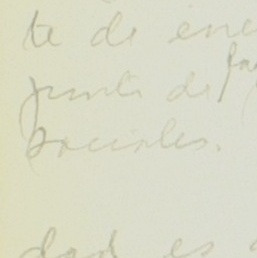 te de ene
punto de
sociales.
dad es